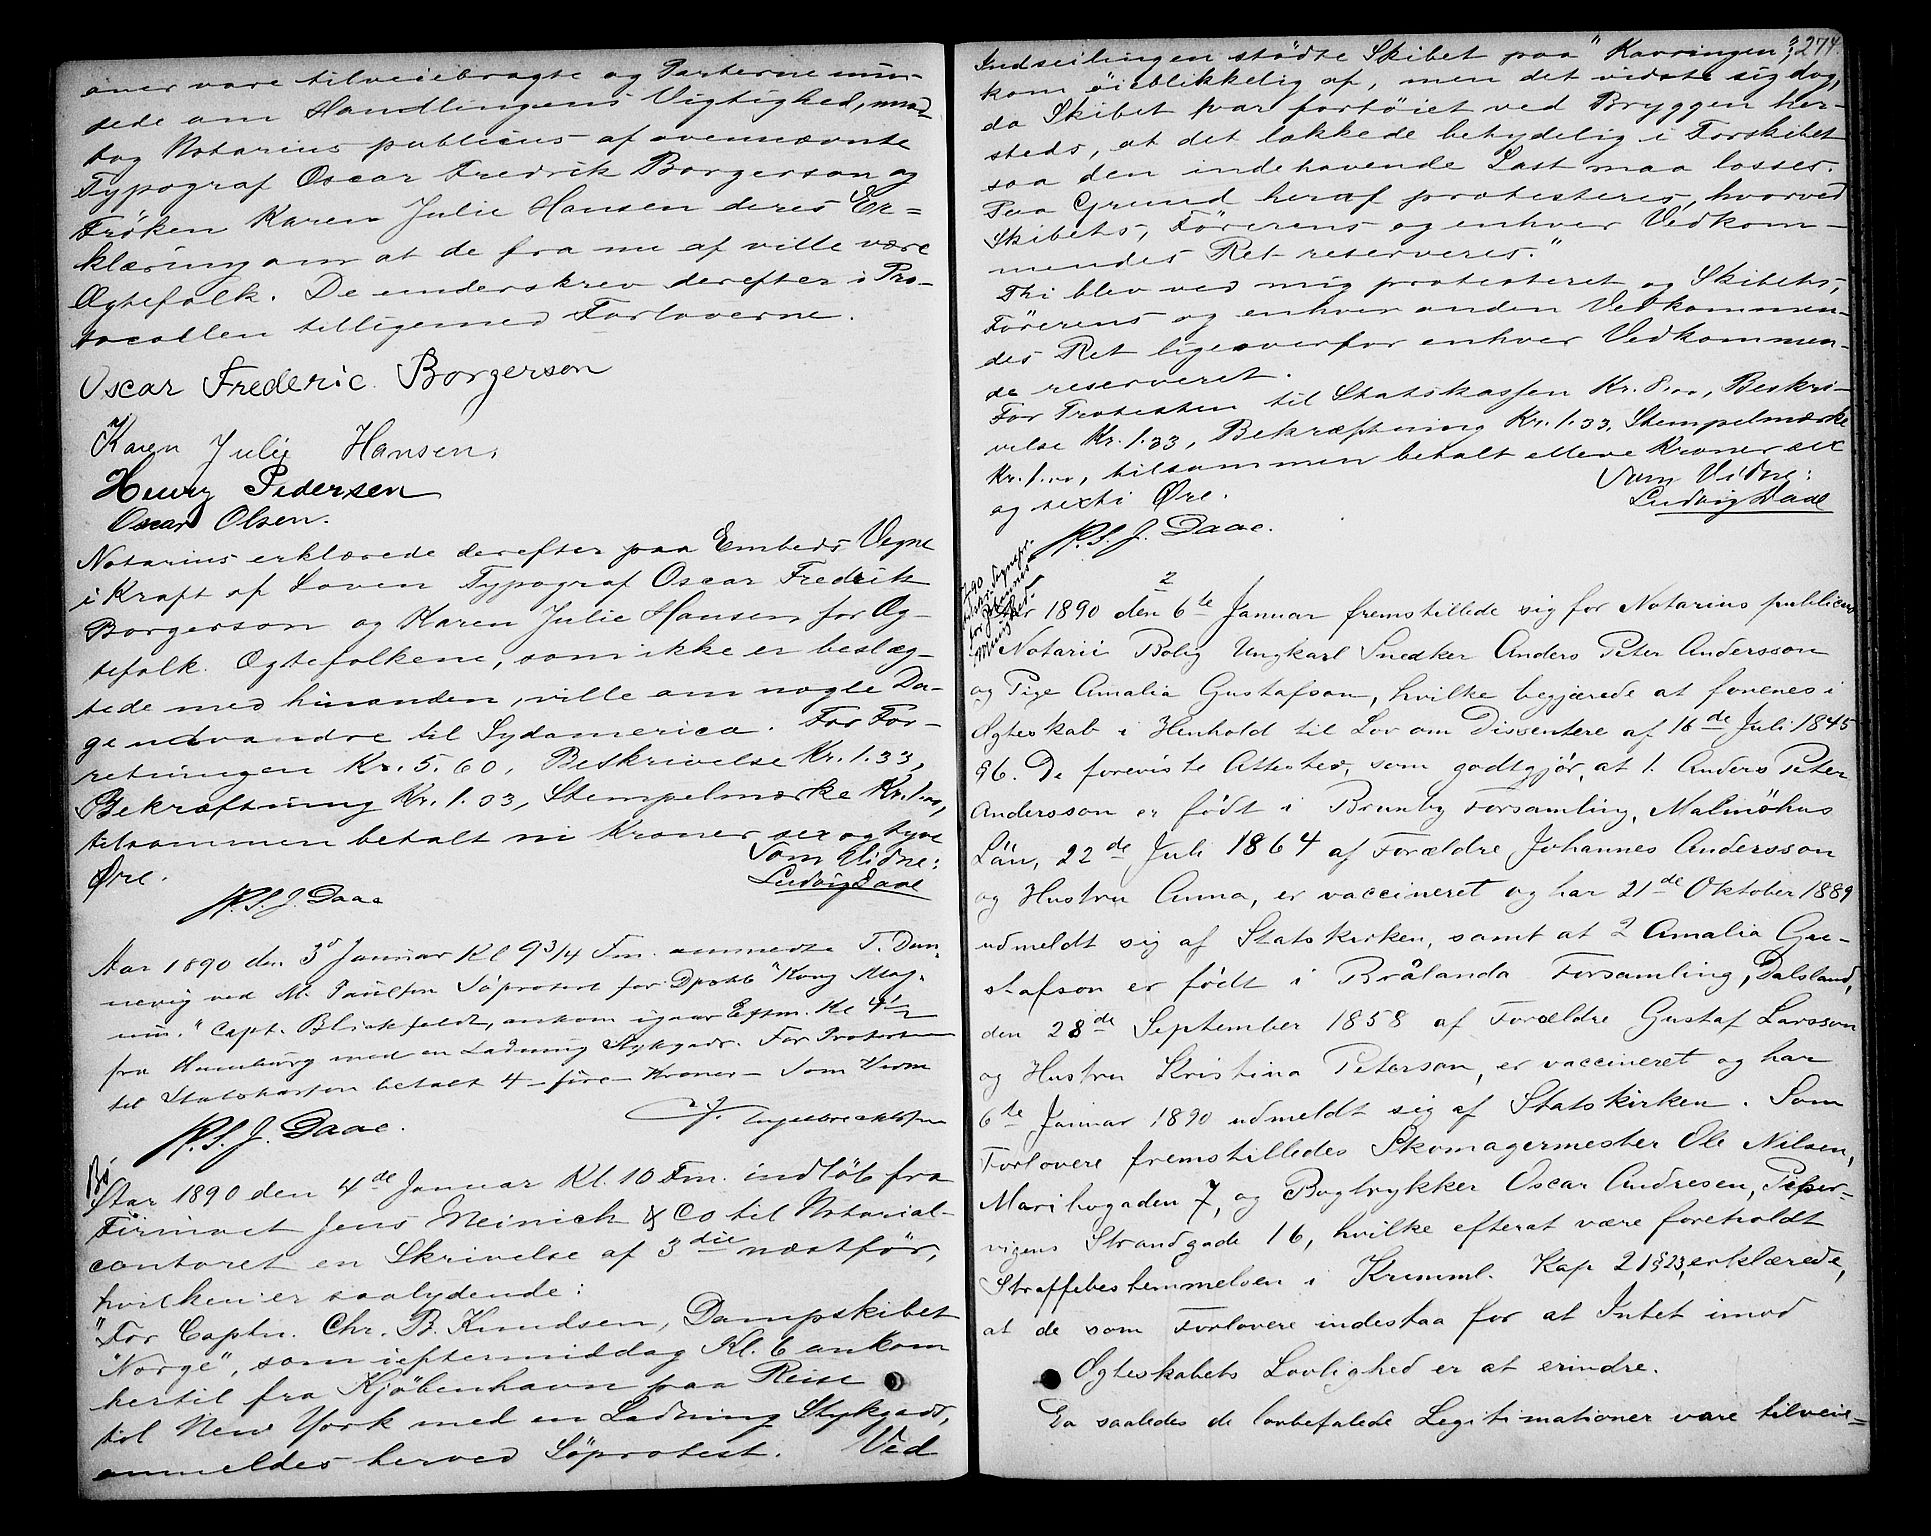 oner vare tilveiebragte og Parterne min-
dede om Handlingens Vigtighed, mod-
tog Notarius publicus af ovennævnte
Typograf Oscar Fredrik Borgerson og
Frøken Karen Julie Hansen deres Er=
klæring om at de fra nu af ville være
Ægtefolk. De underskrev derefter i Pro-
tocollen tilligemed Forloverne.
Oscar Frederic Borgerson
Karen Julie Hansen.
Henry Pedersen
Oscar Olsen.
Notarius erklærede derefter paa Embeds Vegne
i Kraft af Loven Typograf Oscar Fredrik
Borgerson og Karen Julie Hansen for Æg-
tefolk. Ægtefolkene, som ikke er beslæg-
tede med hinanden, ville om nogle Da-
ge udvandre til Sydamerica. For For-
retningen Kr. 5.60, Beskrivelse Kr. 1.33,
Bekræftning Kr. 1.33, Stempelmærke Kr. 1.00,
tilsammen betalt ni Kroner sex og tyve
Øre.
Som Vidne:
Ludvig Daae
H.S.J. Daae
Aar 1890 den 3d Januar Kl 9 3/4 Fm. anmeldte T. Dan-
nevig ved M. Paulsen Søprotest for Dpskb "Kong Mag-
nus." Capt. Blichfeldt, ankom igaar Eftm. Kl 4 1/2
fra Hamburg med en Ladning Stykgods. For Protesten
til Statskassen betalt 4 - fire - Kroner - Som Vidne
H.S.J. Daae.
Engelbrechtsen
Aar 1890 den 4de Januar Kl. 10 Fm. indløb fra
Firmaet Jens Meinich & Co til Notarial-
contoret en Skrivelse af 3die næstfør,
hvilken er saalydende:
"For Captn. Chr. B. Knudsen, Dampskibet
"Norge", som ieftermiddag Kl. 6 ankom
hertil fra Kjøbenhavn paa Reise
til New York med en Ladning Stykgods,
anmeldes herved Søprotest. Ved
274.
Indseilingen stødte Skibet paa "Kavringen",
kom øieblikkelig af, men det viste sig dog,
da Skibet var fortøiet ved Bryggen her-
steds, at det lækkede betydelig i Forskibet
saa den indehavende Last maa losses.
Paa Grund heraf protesteres, hvorved
Skibets, Førerens og enhver Vedkom-
mendes Ret reserveres."
Thi blev ved mig protesteret og Skibets,
Førerens og enhver anden Vedkommen-
des Ret ligeoverfor enhver Vedkommen-
de reserveret.
For Protesten til Statskassen Kr. 8.00, Beskri-
velse Kr. 1.33, Bekræftning Kr. 1.33, Stempelmærke
Kr. 1.00, tilsammen betalt elleve Kroner sex
og sexti Øre.
Som Vidne:
Ludvig Daae
H.S.J. Daae.
2
Aar 1890 den 6te Januar fremstillede sig for Notarius publicus
i Notarii Bolig Ungkarl Snedker Anders Peter Andersson
og Pige Amalia Gustafson, hvilke begjærede at forenes i
Ægteskab i Henhold til Lov om Dissentere af 16de Juli 1845
§6. De foreviste Attester, som godtgjør, at 1. Anders Peter
Andersson er født i Brunby Forsamling, Malmöhus
Län, 22de Juli 1864 af Forældre Johannes Andersson
og Hustru Anna, er vaccineret og har 21de Oktober 1889
udmeldt sig af Statskirken, samt at 2 Amalia Gu-
stafson er født i Brålanda Forsamling, Dalsland,
den 28de September 1858 af Forældre Gustaf Larsson
og Hustru Kristina Peterson, er vaccineret og har
6te Januar 1890 udmeldt sig af Statskirken. Som
Forlovere fremstilledes Skomagermester Ole Nilsen,
Maribogaden 7, og Bogtrykker Oscar Andresen, Piper-
vigens Strandgade 16, hvilke efterat være foreholdt
Straffebestemmelsen i Kriminl. Kap 21 § 23, erklærede,
at de som Forlovere indestaa for at Intet imod
Ægteskabets Lovlighed er at erindre.
Da saaledes de lovbefalede Legitimationer vare tilveie=